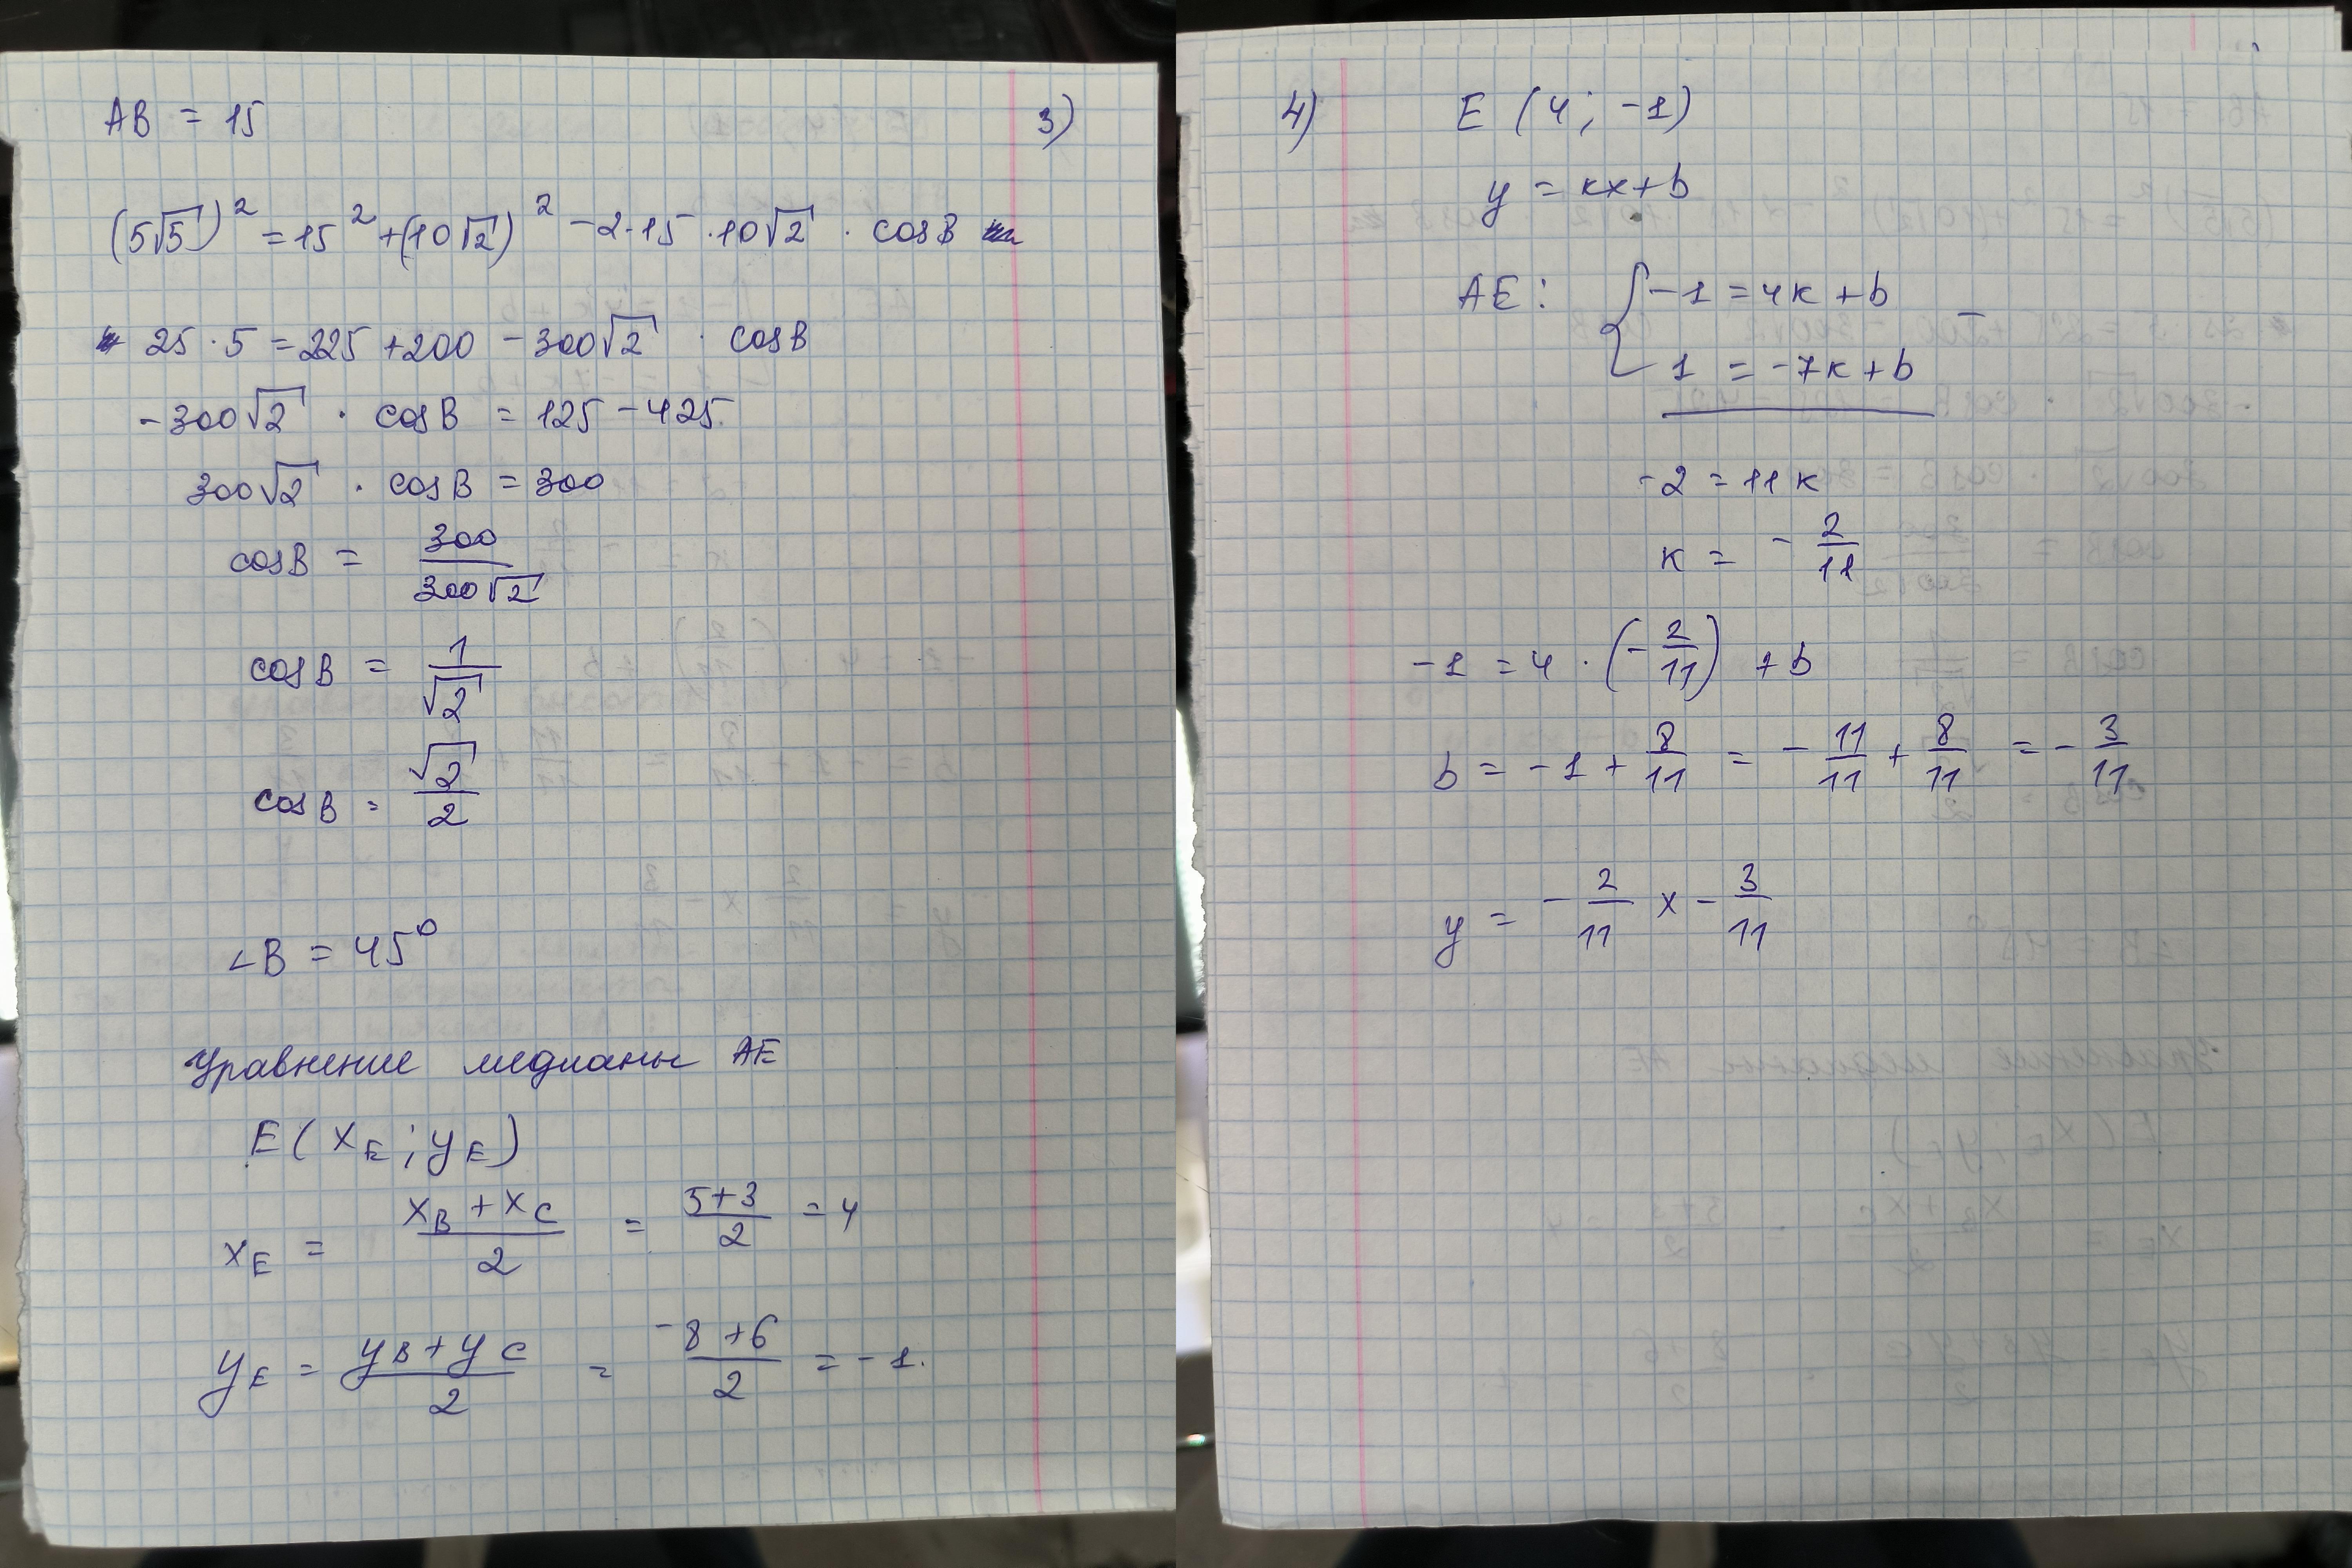 AB = 15
3)
(5√5)² = 15² + (10√2)² - 2·15·10√2 · cosB
25·5 = 225 + 200 - 300√2 · cosB
-300√2 · cosB = 125 - 425
300√2 · cosB = 300
cosB = 300/(300√2)
cosB = 1/√2
cosB = √2/2
∠B = 45°
Уравнение медианы AE
E(x_E; y_E)
x_E = (x_B + x_C)/2 = (5+3)/2 = 4
y_E = (y_B + y_C)/2 = (-8+6)/2 = -1.
4)
E (4; -1)
y = kx+b
AE: { -1 = 4k + b
1 = -7k + b
-
-2 = 11k
k = -2/11
-1 = 4 · (-2/11) + b
b = -1 + 8/11 = -11/11 + 8/11 = -3/11
y = -2/11 x - 3/11